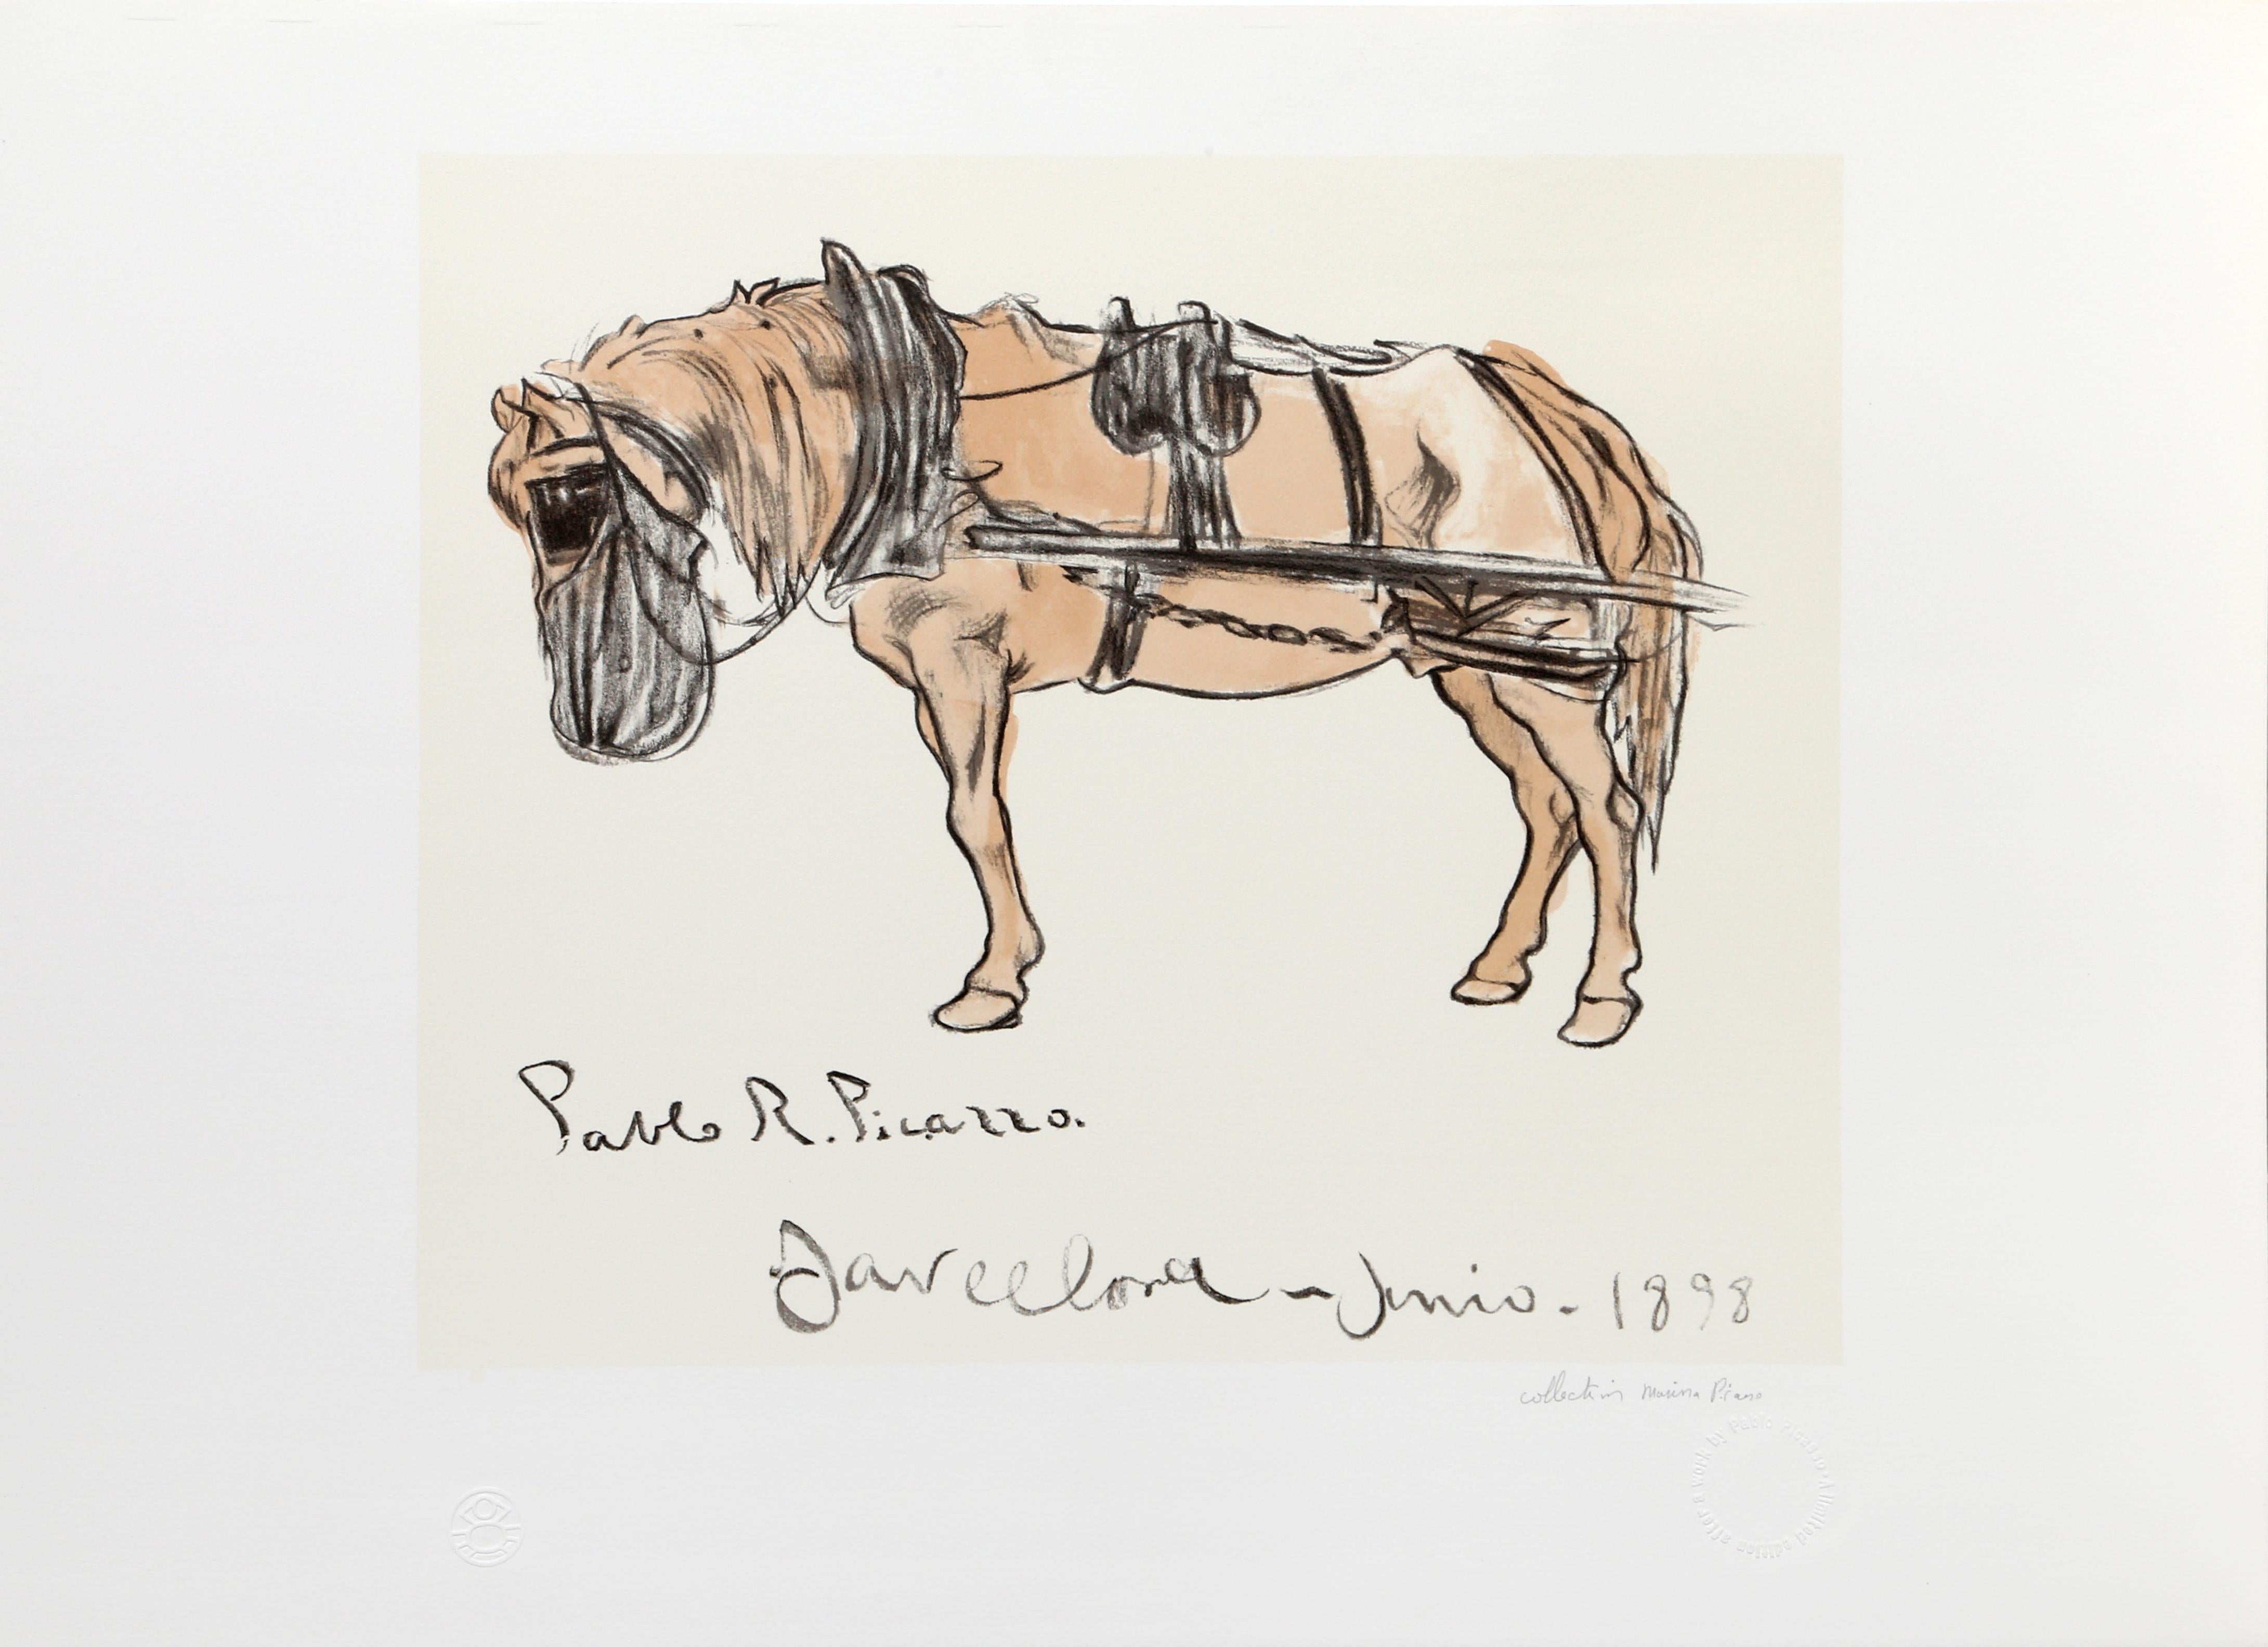 Pablo R. Picazzo.
Barcelona - Junio. 1898
collection Marina Picasso
after a work by Pablo Picasso · A limited edition